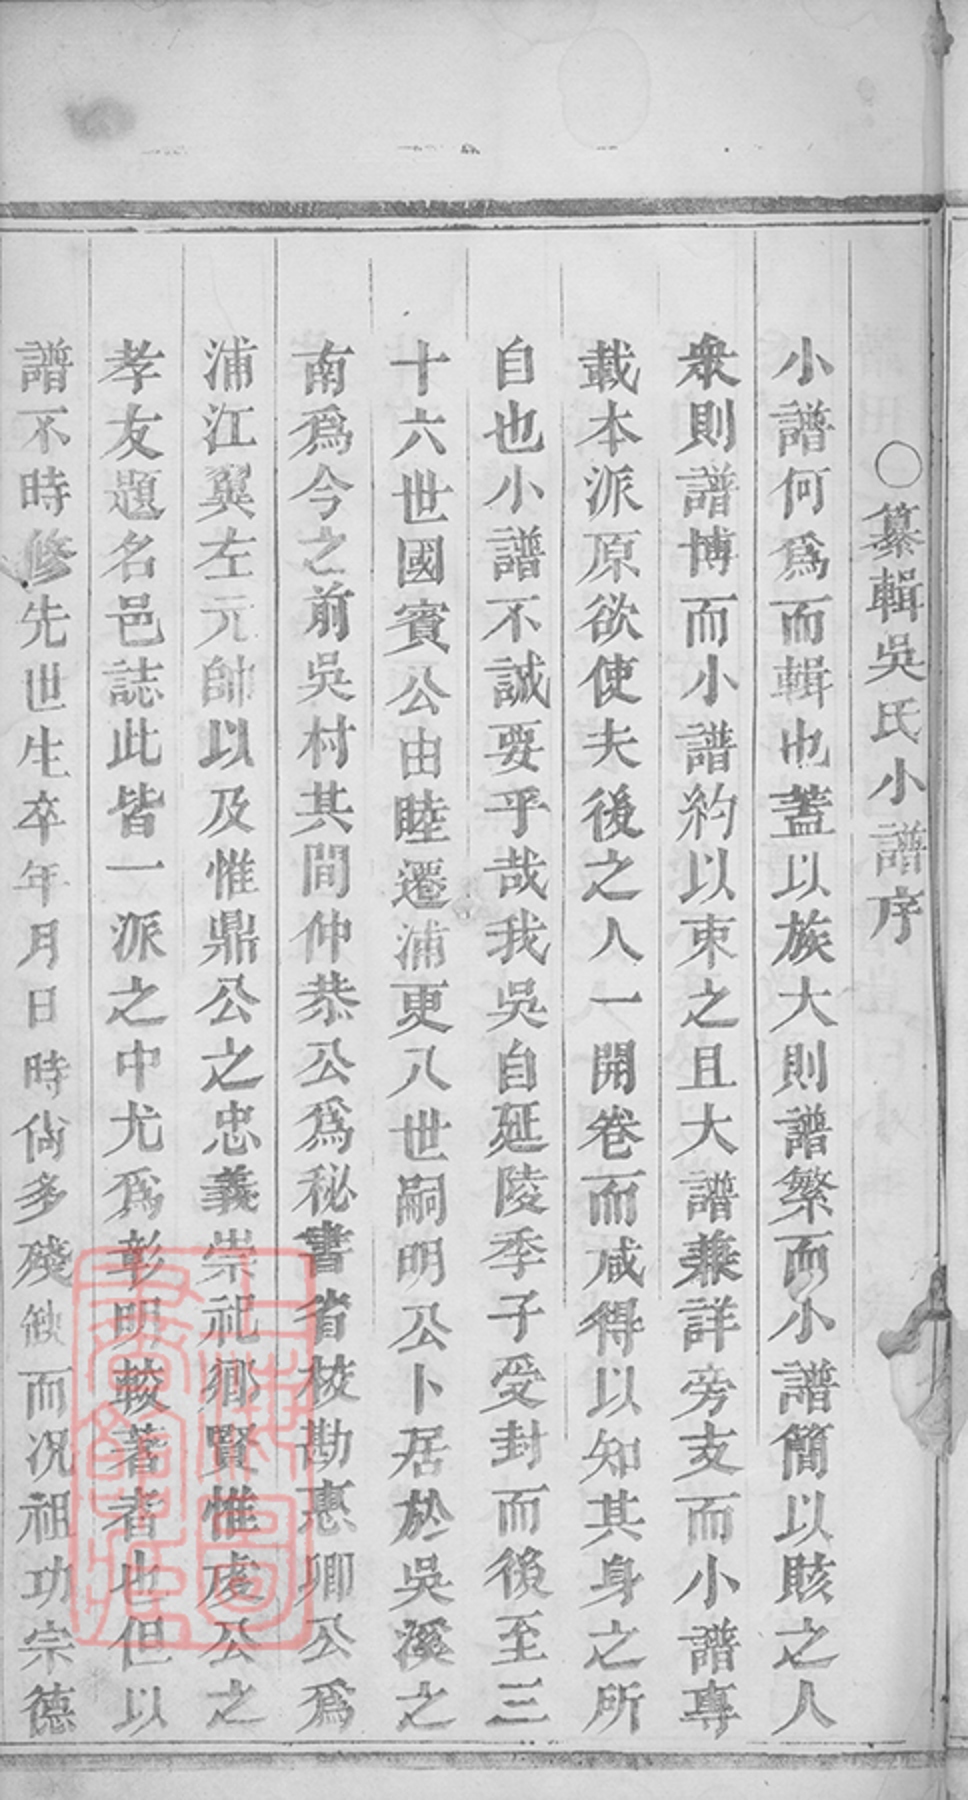 ○纂輯吳氏小譜序
小譜何爲而輯也蓋以族大則譜繁而小譜簡以賅之人
衆則譜博而小譜約以束之且大譜兼詳旁支而小譜專
載本派原欲使夫後之人一開卷而咸得以知其身之所
自也小譜不誠要乎哉我吳自延陵季子受封而後至三
十六世國賓公由睦遷浦更八世嗣明公卜居於吳溪之
南爲今之前吳村其間仲恭公爲秘書省校勘惠卿公爲
浦江翼左元帥以及惟鼎公之忠義崇祀鄉賢惟虔公之
孝友題名邑誌此皆一派之中尤爲彰明較著者也但以
譜不時修先世生卒年月日時尙多殘缺而况祖功宗德
上海圖書館藏